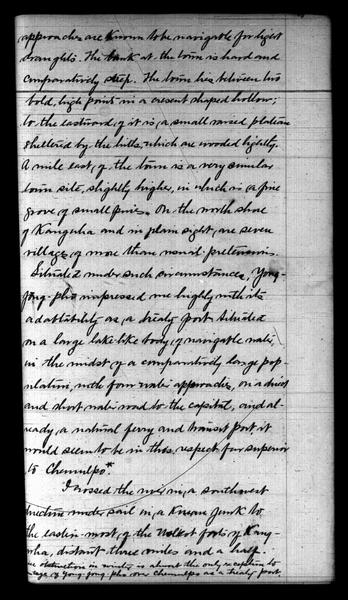 approaches are known to be navigable for light
draughts. The bank at the town is hard and
comparatively steep. The town lies between two
bold, high points in a cresent shaped hollow;
to the eastward of it is, a small raised plateau
sheltered by the hills, which are wooded lightly.
A mile east, of the town is a very similar
town site, slightly higher, in which is a fine
grove of small pines. On the north shore
of Kangwha and in plain sight, are seven
villages of more than usual pretension.
Situated under such circumstances, Yong-
jong-pho impressed me highly with its
adaptability as, a treaty port. Situated
on a large lake like body, of navigable water,
in the midst of a comparatively large pop-
ulation, with four water approaches, on a direct
and short water road to the capital, and al-
ready, a natural ferry and transit port it
would seem to be in this respect far superior
to Chemulpo*.
I crossed the river in, a southwest
direction under sail in, a Korean junk to
the eastern-most, of the Walkot forts of Kang-
wha, distant three miles and a half.
* Ice obstruction in winter is almost the only exception to
of Yong-jong-pho over Chemulpo as a treaty port